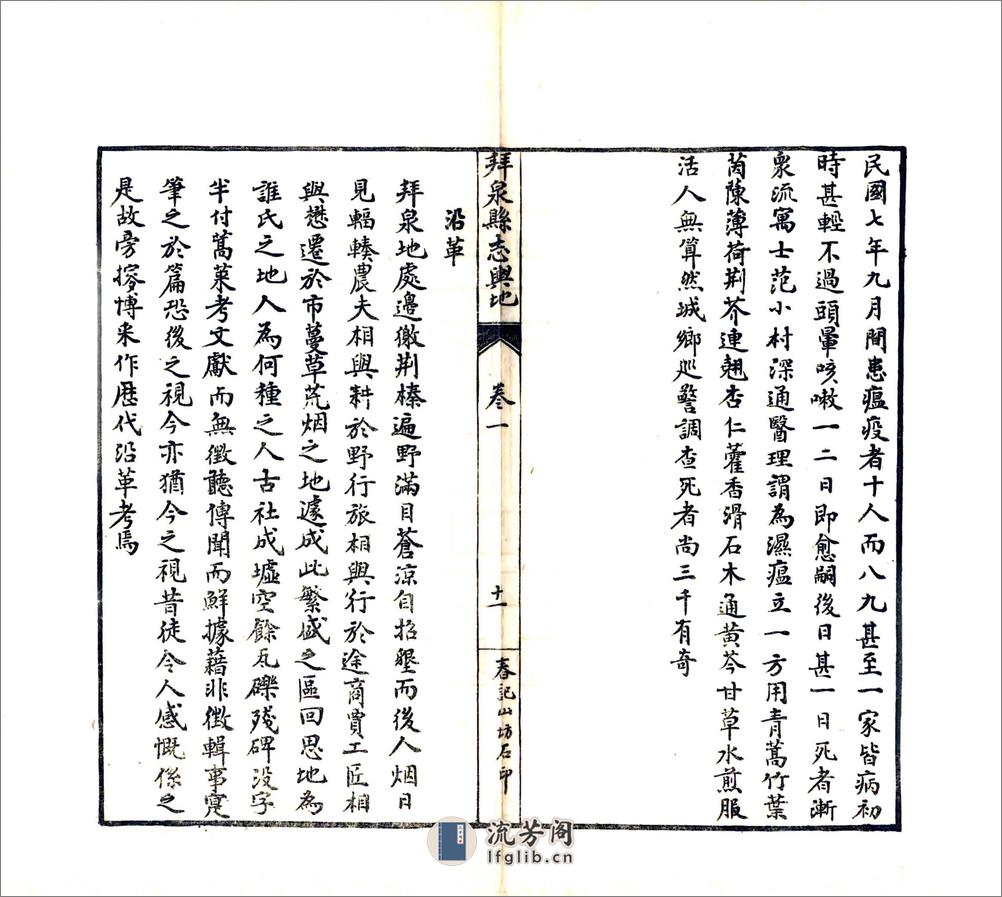 民國七年九月間患瘟疫者十人而八九甚至一家皆病初
時甚輕不過頭暈咳嗽一二日即愈嗣後日甚一日死者漸
衆流寓士范小村深通醫理謂為濕瘟立一方用青蒿竹葉
茵陳薄荷荆芥連翹杏仁藿香滑石木通黄芩甘草水煎服
活人無算然城鄉巡警調查死者尚三千有奇
拜泉縣志輿地
卷一
十一
春記山坊石印
沿革
拜泉地處邊徼荆榛遍野滿目蒼凉自招墾而後人烟日
見輻輳農夫相與耕於野行旅相與行於途商賈工匠相
與懋遷於市蔓草荒烟之地遽成此繁盛之區回思地為
誰氏之地人為何種之人古社成墟空餘瓦礫殘碑没字
半付蒿萊考文獻而無徵聽傳聞而鮮據藉非徵輯事寔
筆之於篇恐後之視今亦猶今之視昔徒令人感慨係之
是故旁搜博采作歷代沿革考焉
流芳阁
lfglib.cn